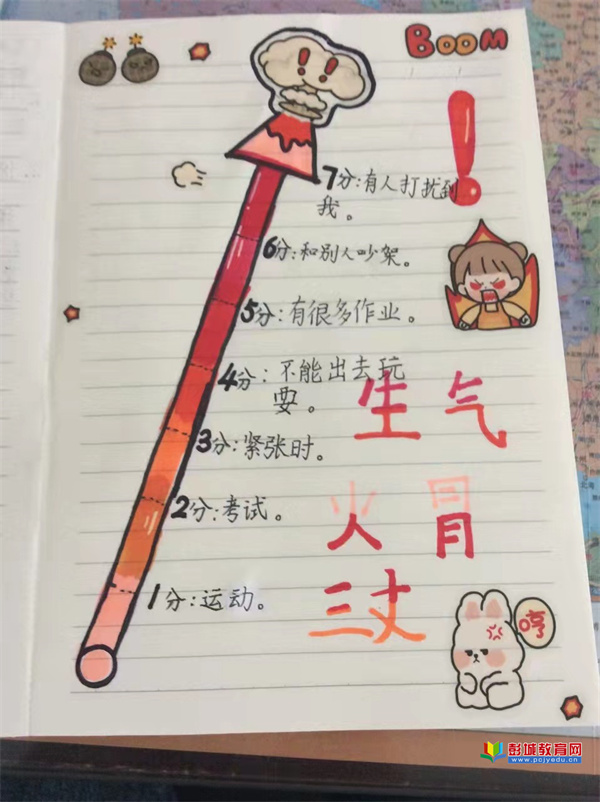 BOOM
7分:有人打扰到
我。
6分:和别人吵架。
5分:有很多作业。
4分:不能出去玩
耍。
3分:紧张时。
2分:考试。
1分:运动。
!
生气
火冒
三丈
哼
彭城教育网
www.pcjyedu.cn